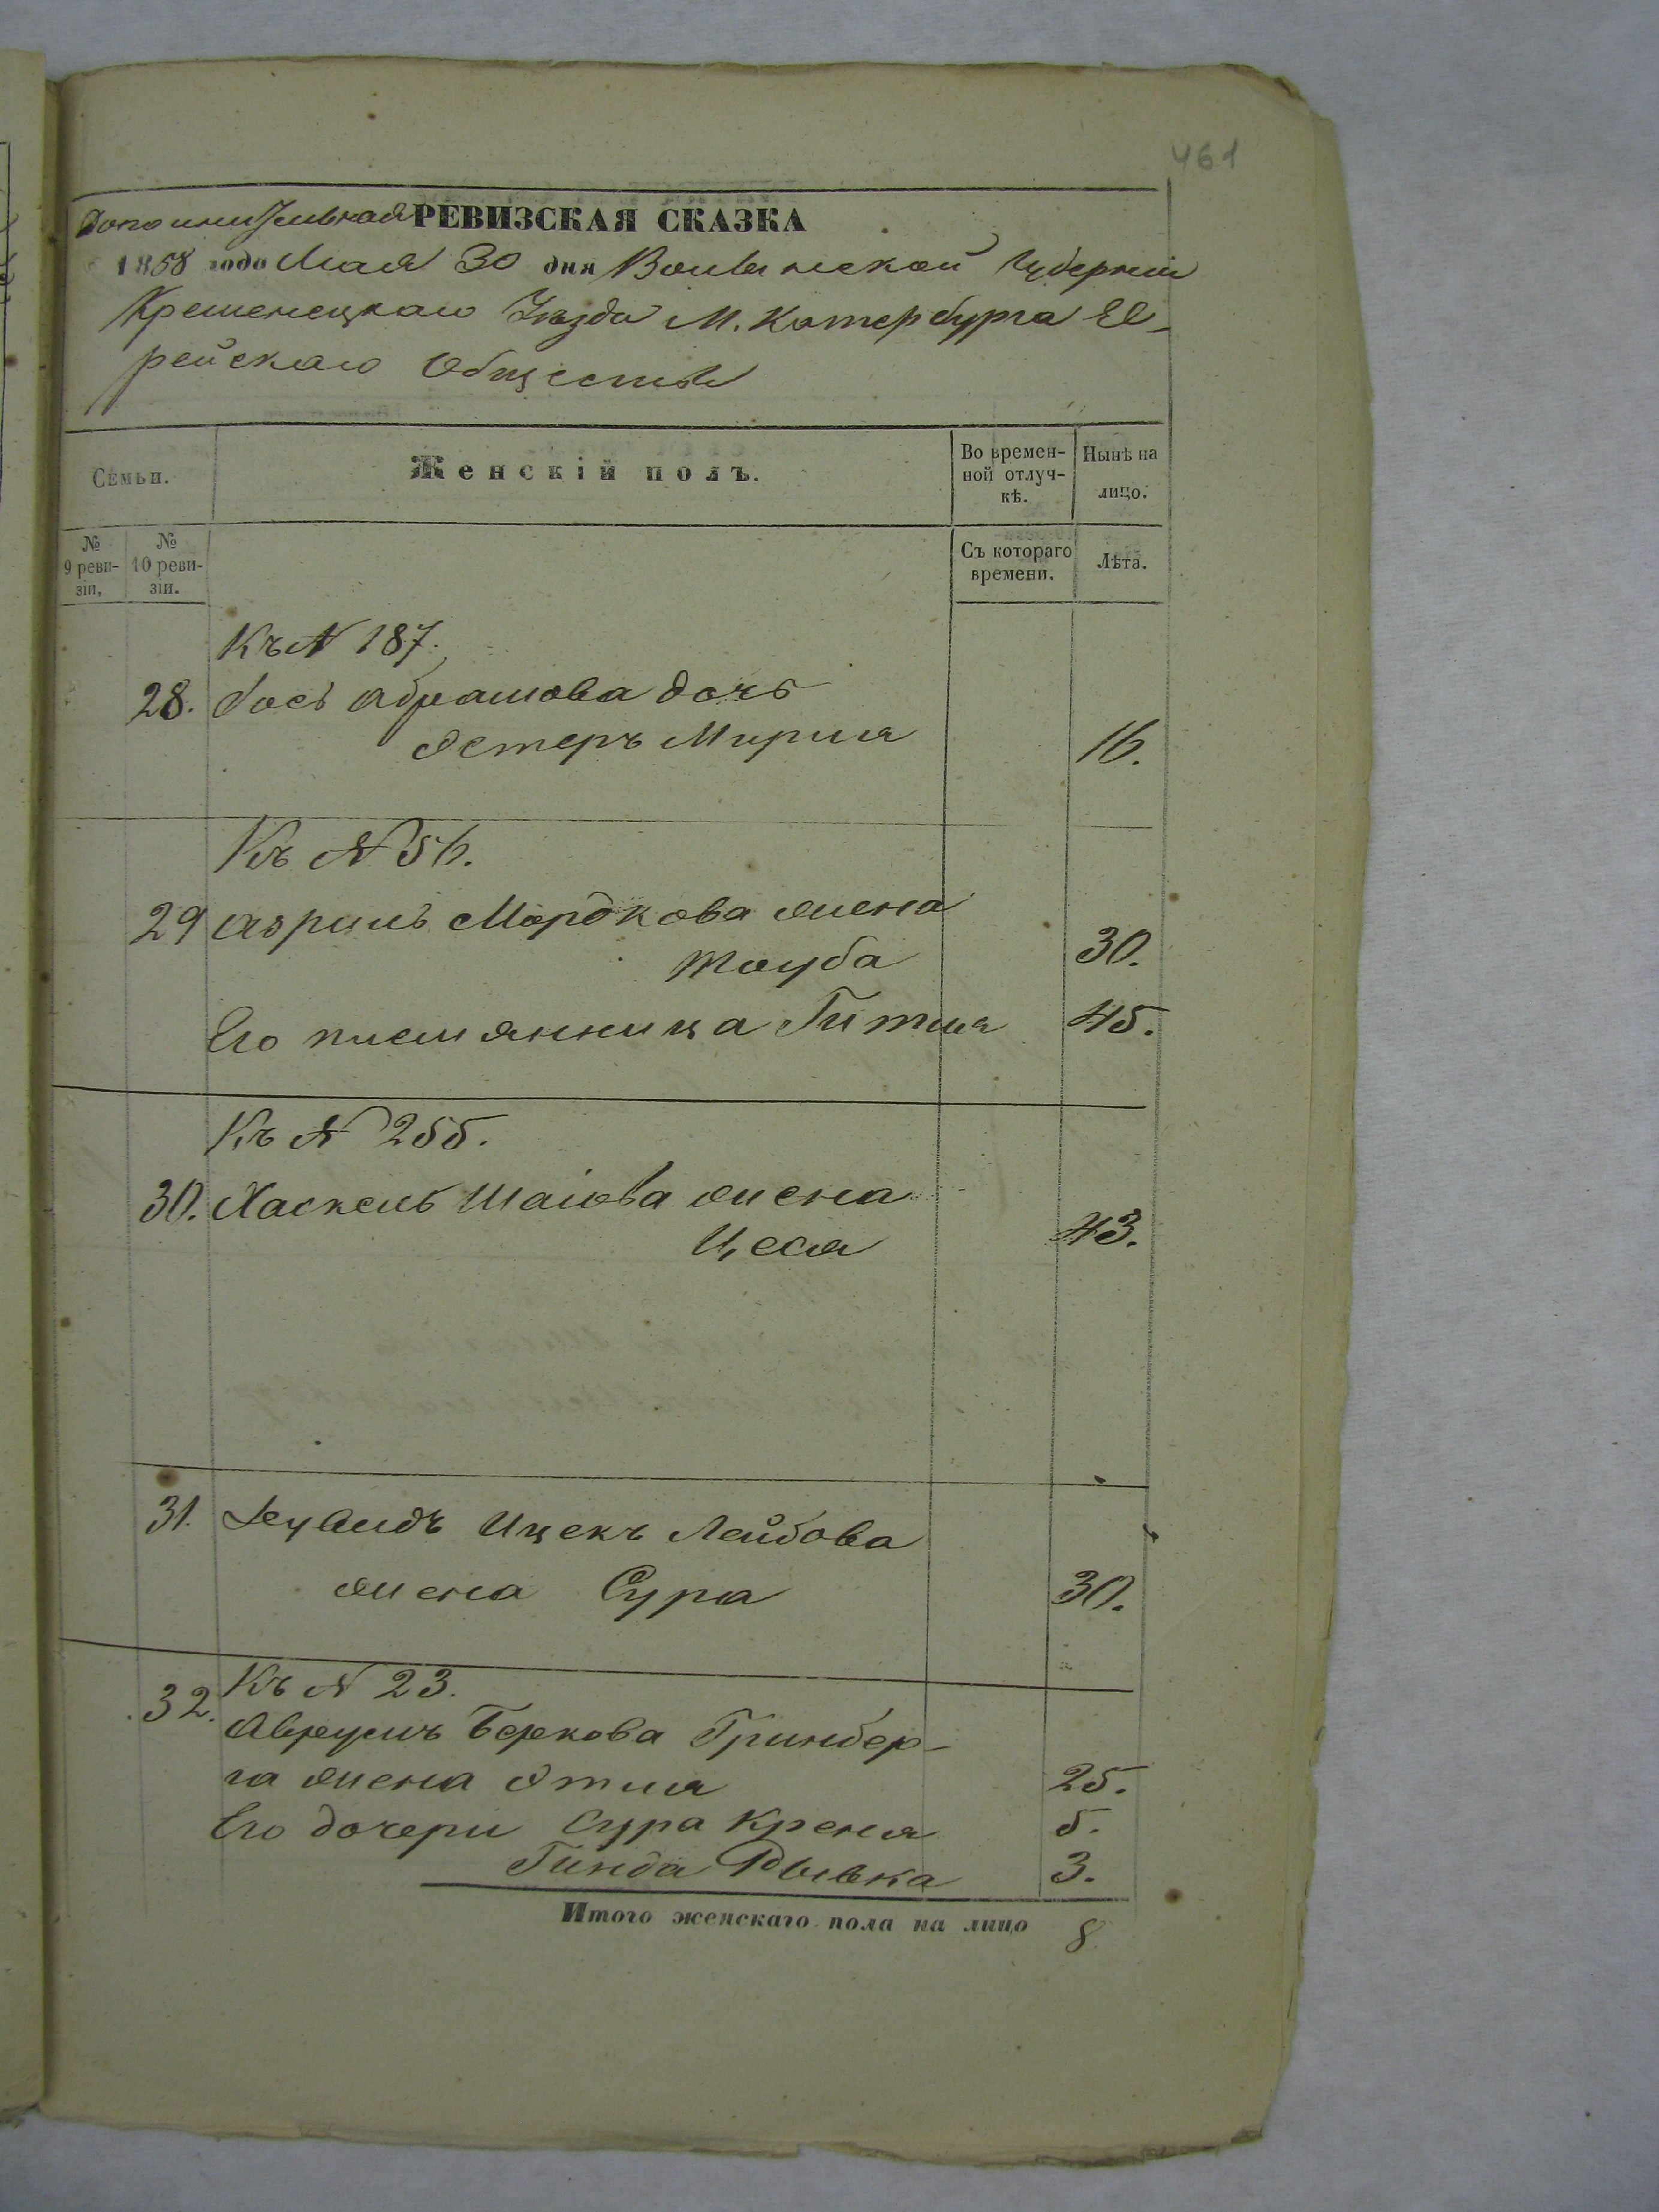 461
Дополнительная РЕВИЗСКАЯ СКАЗКА
1858 года Мая 30 дня Волынской Губерніи
Кременецкаго Уѣзда М. Катербурга Ев-
рейскаго Общества
Семьи.
Женскій полъ.
Во времен-
ной отлуч-
кѣ.
Нынѣ на
лицо.
№
9 реви-
зіи.
№
10 реви-
зіи.
Съ котораго
времени.
Лѣта.
Къ N 187.
28. Іось Абрамова дочь
Эстеръ Мирля 16.
Къ N 56.
29 Азриль Мордкова жена
Тауба 30.
Его племянница Гитля 45.
Къ N 255.
30. Хаскель Шаіова жена
Цеся 43.
31. Ицекъ Лейбова
жена Сура 30.
Къ N 23.
32. Аврумъ Беркова Гринбер-
га жена Этля 25.
Его дочери Сура Креня 5.
Гинда Рывка 3.
Итого женскаго пола на лицо 8